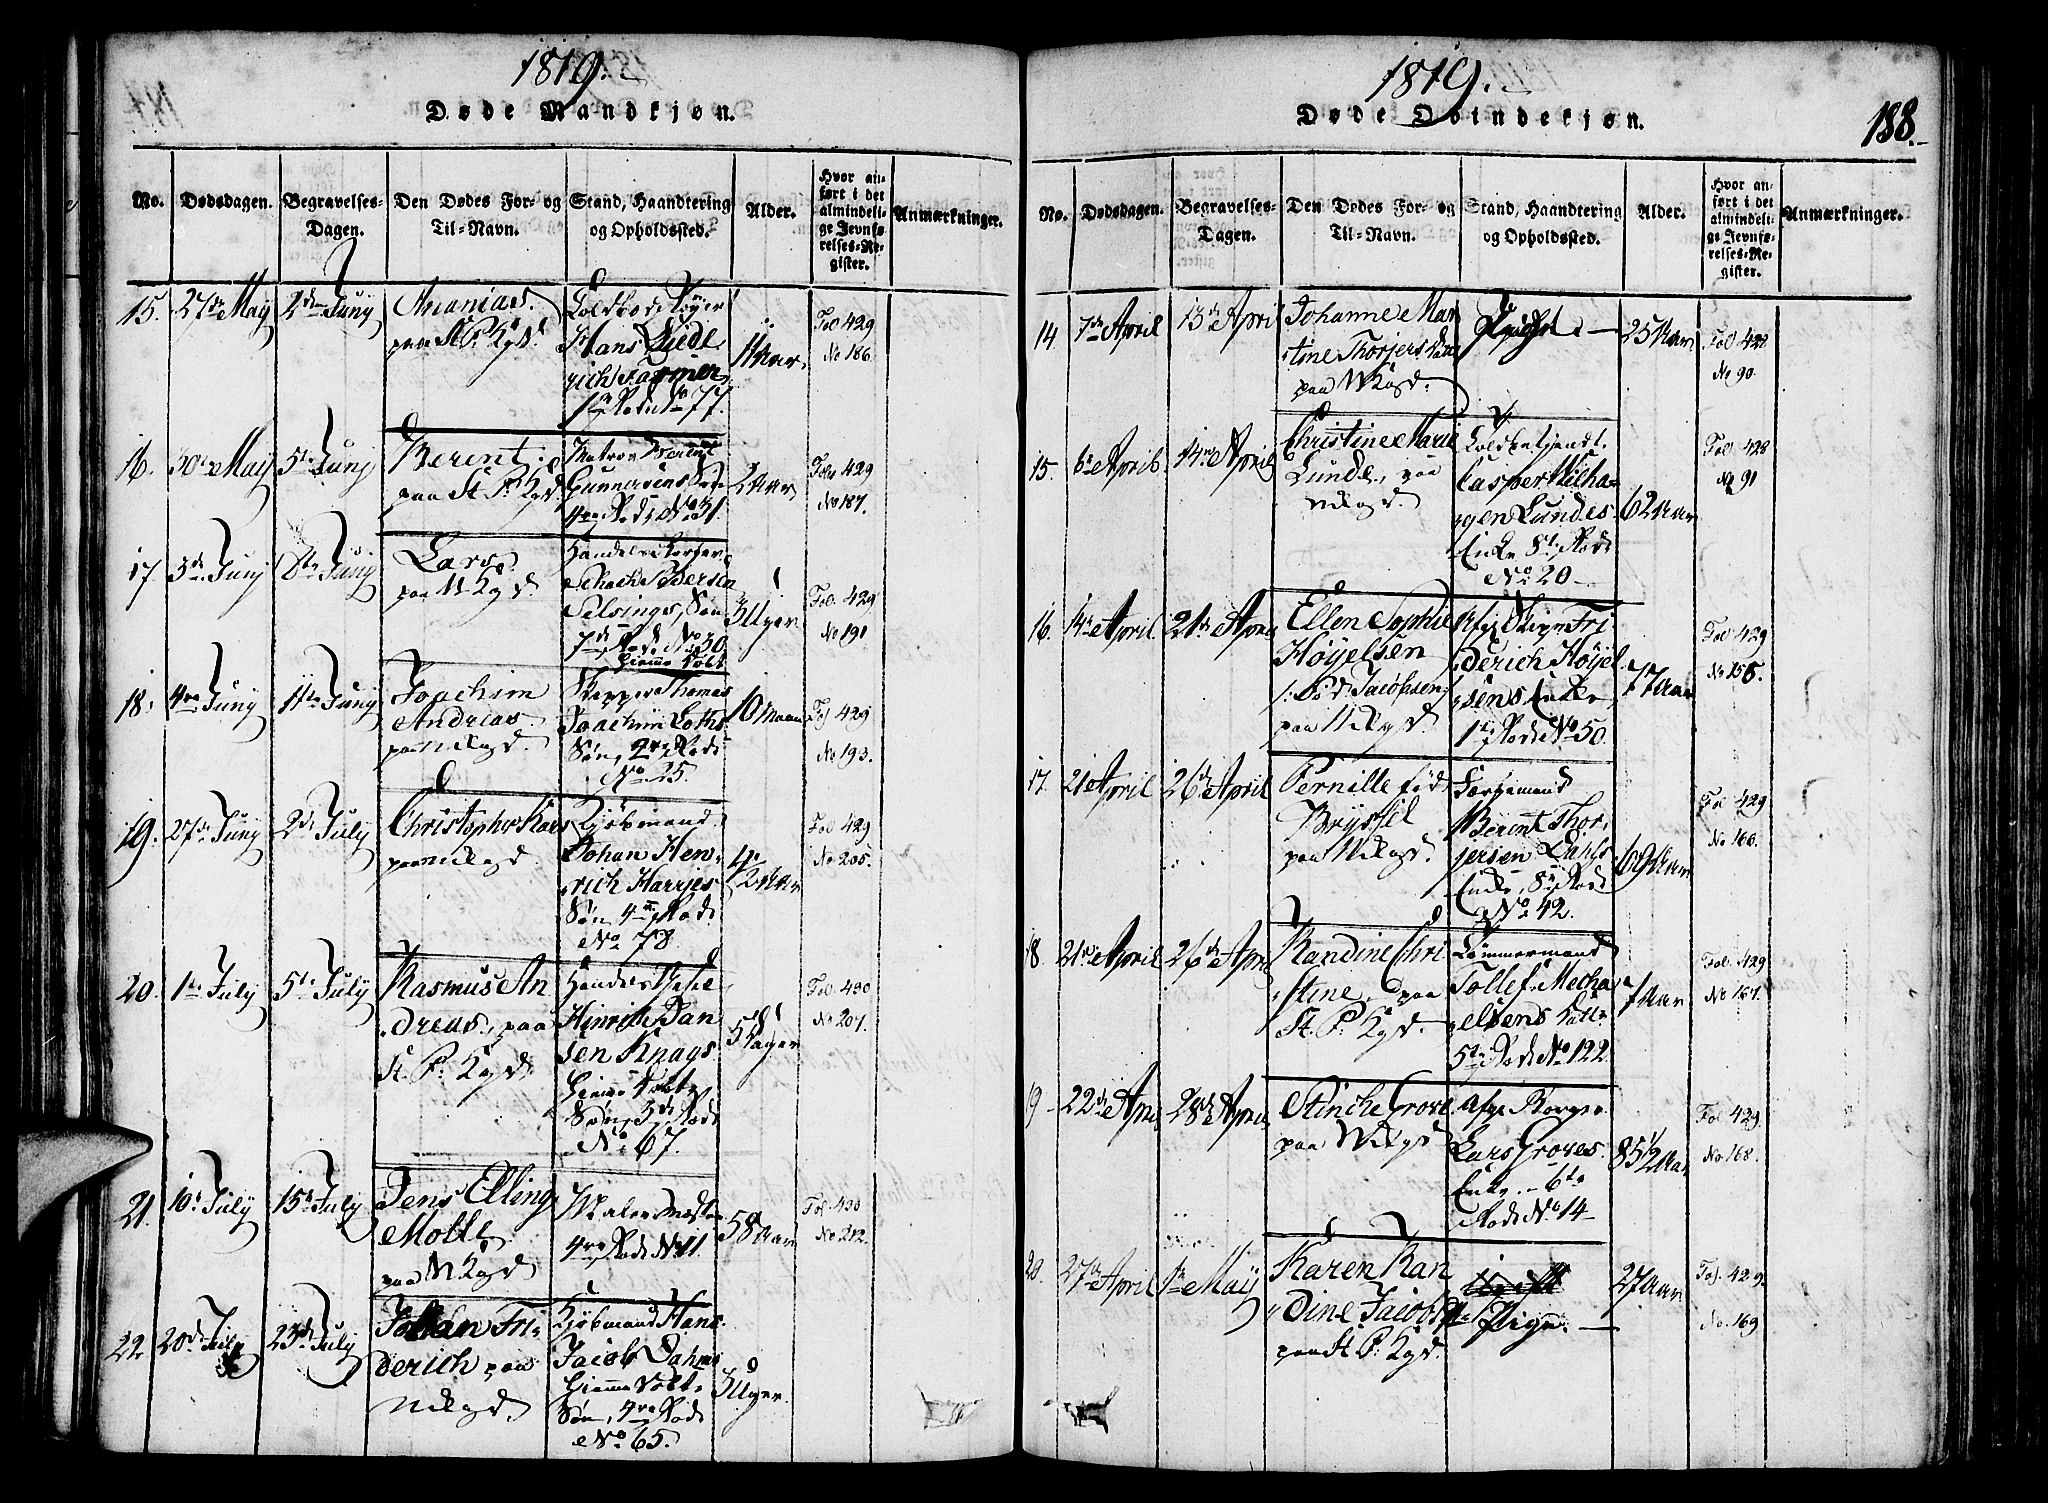 1819.
Døde Mandkjøn.
No.
Dødsdagen.
Begravelses-
Dagen.
Den Dødes For- og
Til-Navn.
Stand, Haandtering
og Opholdssted.
Alder.
Hvor an-
ført i det
almindeli-
ge Jevnfø-
relses-Re-
gister.
Anmærkninger.
15. 27de May 2den Juny Ananias
paa St P: Kgd.
Hans Diede
rich
1ste Rode No 77.
11 Aar.
Fol 429
No 186.
16. 30te May 5te Juny Berent
paa St. P: Kgd.
Berent
Gunnersens Søn
4re Rode No 31.
2 Aar
Fol 429
No 187.
17. 3de Juny 8te Juny Lars
paa N Kgd.
Pedersen
Selsings, Søn
7de Rode No 30
Hiemme Døbt
3 Uger
Fol. 429
No 191
18. 4re Juny 11te Juny Joachim
Andreas
paa Nikgd.
Skipper Thomas
Joachim Loths
Søn, 2re Rode
No 25.
10 Maan
Fol 429
No 193.
19. 27de Juny 2de July Christopher Lars
paa Nikgd.
Kjøbmand
Johan Hen-
rich Harries
Søn 4re Rode
No 78
Fol. 429
No 205.
20. 1ste July 5te July Rasmus An
dreas, paa
St. P: Kgd.
Hinrich Dan
sen Knags
Hiemme Døbte
Søn, 3de Rode
No 67.
5 Dager
Fol. 430
No 207.
21. 10de July 15de July Jens Elling
Moll
paa N Kgd
Maler Mester
4re Rode No 11.
58 Aar
Fol. 430
No 212.
22. 20de July 23de July Johan Fri-
derich paa
Nikgd.
Kjøbmand Hans
Jacob Dahms
Hiemme Døbte
Søn, 4re Rode
No 65.
3 Uger
1819.
Døde Qvindekjøn.
188.
No.
Dødsdagen.
Begravelses-
Dagen.
Den Dødes For- og
Til-Navn.
Stand, Haandtering
og Opholdssted.
Alder.
Hvor an-
ført i det
almindeli-
ge Jevnfø-
relses-Re-
gister.
Anmærkninger.
14 7de April 13de April Johanne Mar
tine Thorjers Datt
paa N Kgd.
25 Aar
Fol 428
No 90.
15. 6te April 14de April Christine Marie
Lunde, paa
Nikgd.
Casper Milha-
gen Lundes
Enke 8de Rode
No 20
62 Aar
Fol 428
No 91
16. 14de April 21de April Ellen Sophie
Höyelsen
/: fød Jacobsen
paa Nikgd.
Afg Fri
derich Höyel
sens Enke
1ste Rode No 50.
77 Aar
Fol 429
No 158.
17. 21 April 26de April Pernille fød
Bryssel
paa Nikgd.
Færgemand
Berent Thor-
jersen Dahls
Enke, 8de Rode
No 42.
69 Aar
Fol. 429
No 160.
18. 21de April 26de April Randine Chri
stine, paa
St. P: Kgd.
Tømmermand
Tollef Mecha
elsens Datte
5te Rode No 122.
7 Aar
Fol. 429
No 167.
19 22de April 28de April Stinche Grove
paa Nikgd
Afg. Borger
Lars Groves
Enke 6te
Rode No 14
85 1/2 Aar
Fol 429.
No. 168.
20. 27de April 1ste May Karen Ran
dine Jacobs
paa St P: Kgd.
Pige.
27 Aar
Fol. 429.
No. 169